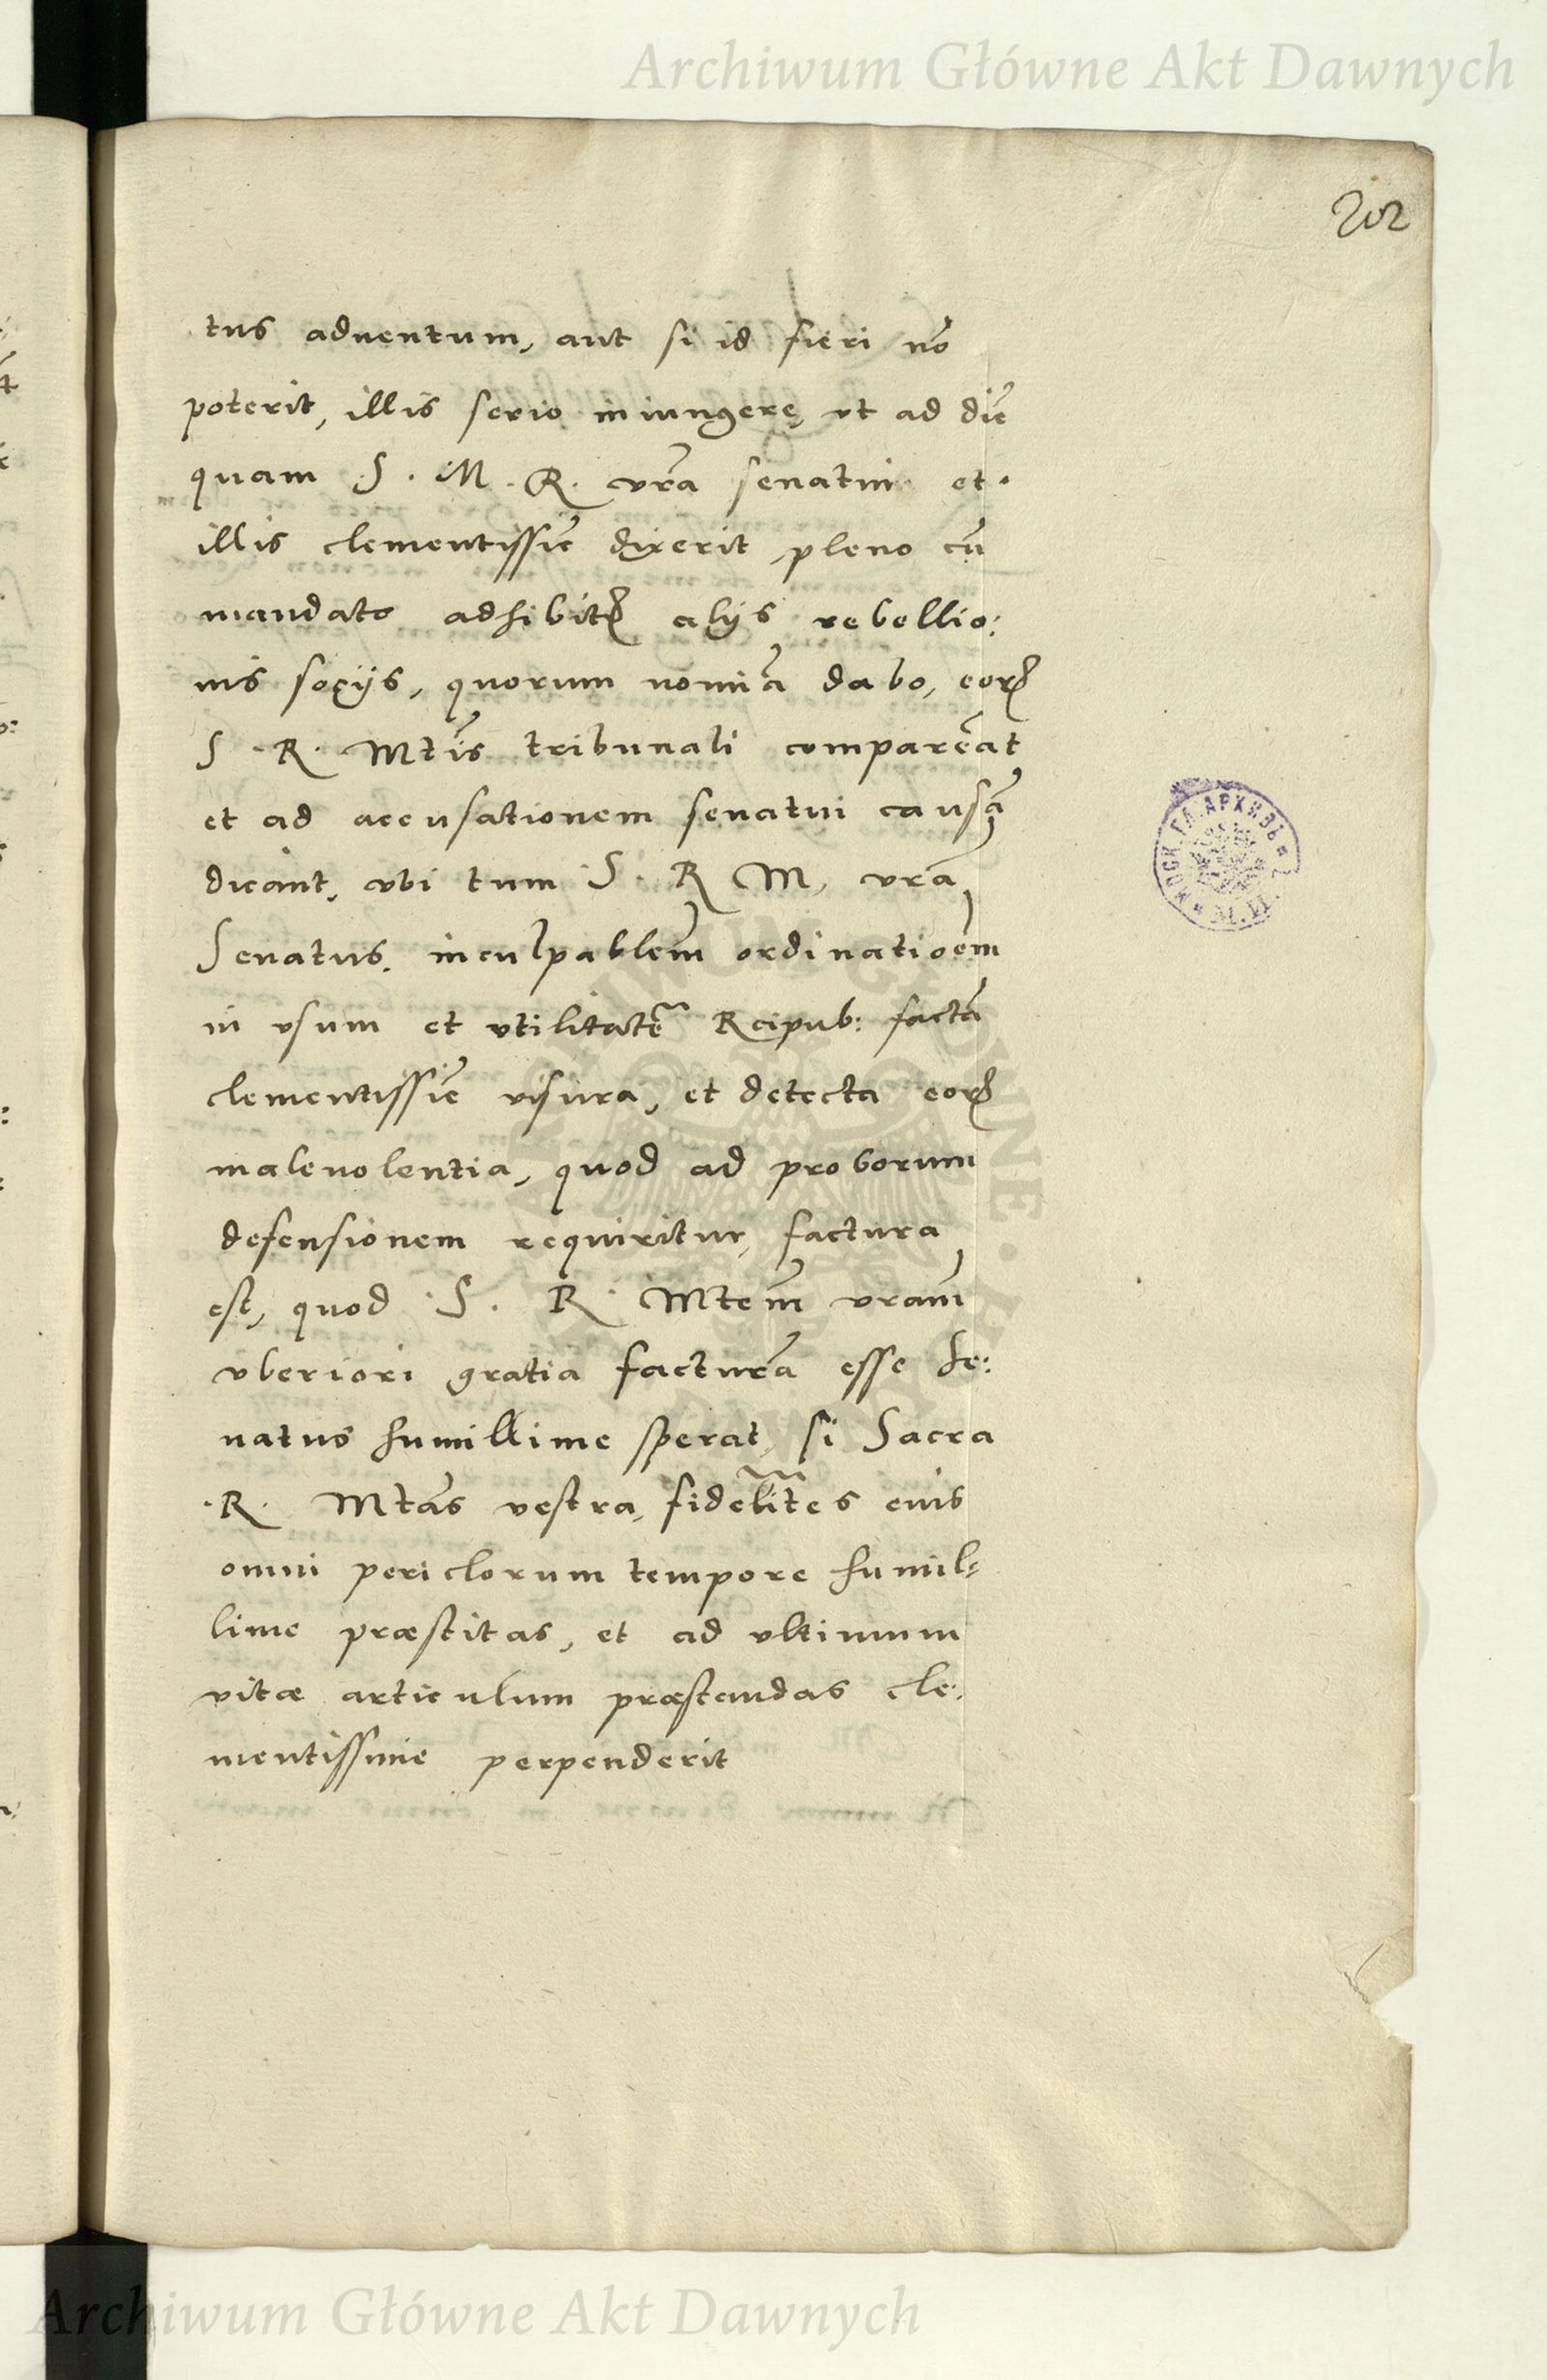 Archiwum Główne Akt Dawnych
202
tus aduentum, aut si id fieri nō
poterit, illis serio iniungere, vt ad diē
quam S. M. R. vr̃a senatui et
illis clementissiē dixerit, pleno cū
mandato adhibitꝭ alijs rebellio:
nis socijs, quorum nomīa dabo, corā
S. R. Mtis tribunali compareāt
et ad accusationem senatui causā
dicant, vbi tum S. R M, vrã
Senatus, inculpablem̃ ordinatioem̃
in vsum et vtilitatē Reipub: factā
clementissiē visura, et detecta eorꝭ
maleuolentia, quod ad proborum
defensionem requiritur, factura
est, quod S. R. Mtem̃ vram̃
vberiori gratia facturā esse Se:
natus humillime sperat, si Sacra
R. Mtas vestra, fidelit̃es eius
omni periclorum tempore humil:
lime præstitas, et ad vltimum
vitæ articulum præstandas cle:
mentissime perpenderit
МОСК. ГЛ. АРХИВЪ
ARCHIWUM GŁÓWNE AKT DAWNYCH
Archiwum Główne Akt Dawnych